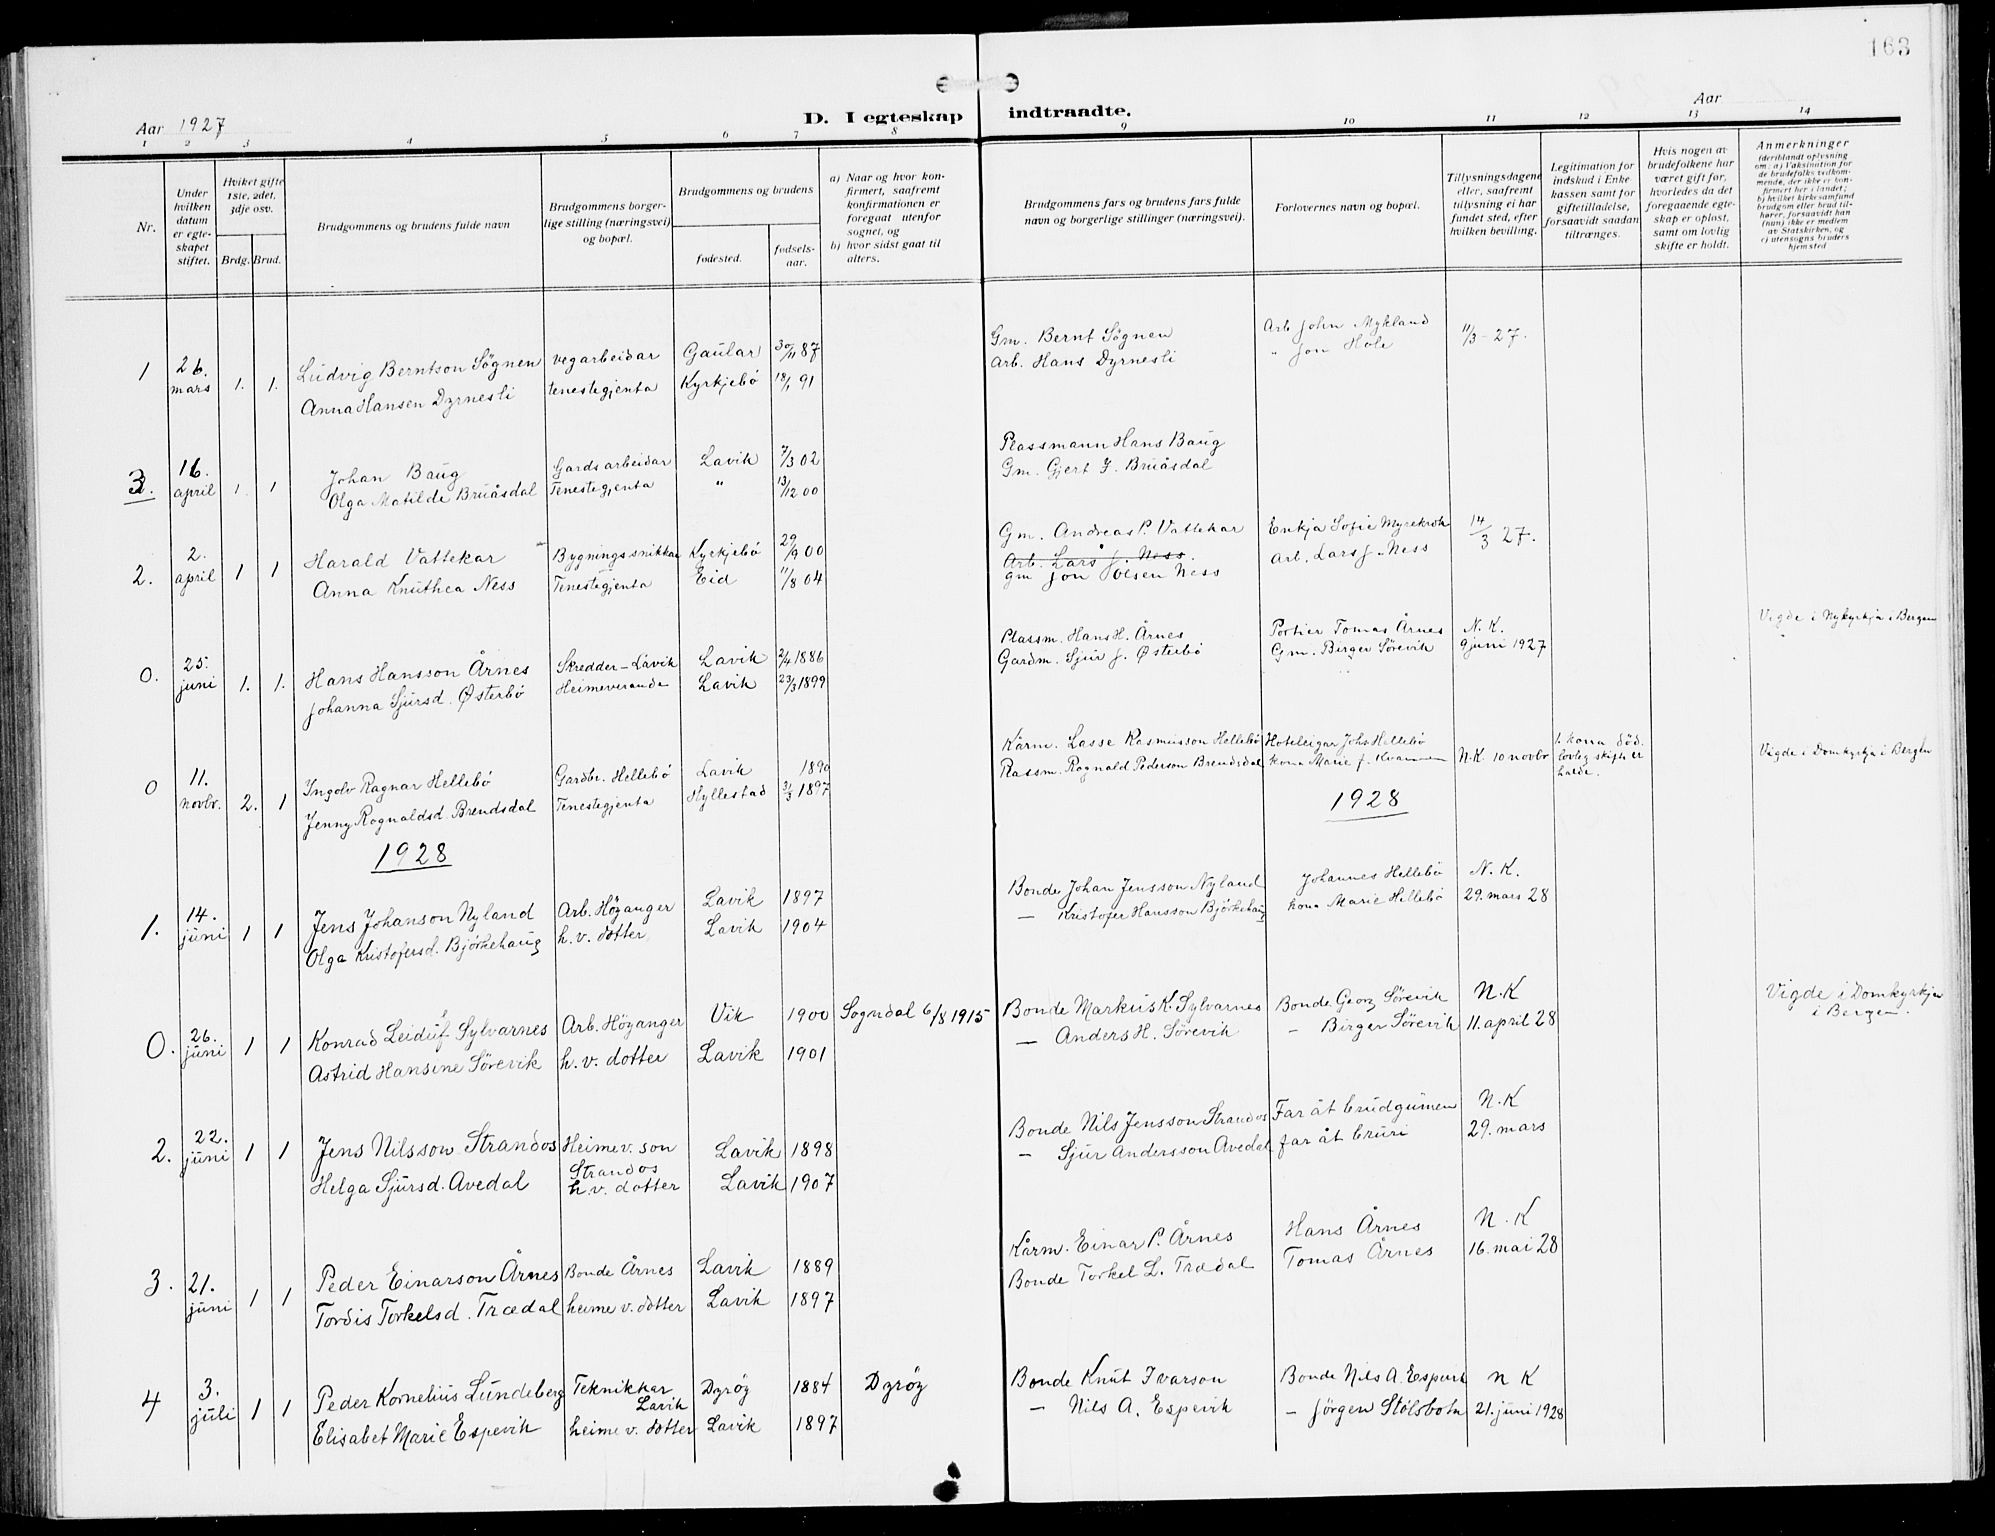 163
Aar 1927
D. I egteskap indtraadte.
Aar
1 2 3 4 5 6 7 8 9 10 11 12 13 14
Nr.
Under hvilken datum er egteskapet stiftet.
Hviket gifte 1ste, 2det, 3dje osv.
Brdg. Brud.
Brudgommens og brudens fulde navn
Brudgommens borgerlige stilling (næringsvei) og bopæl.
Brudgommens og brudens
fødested.
fødselsaar.
a) Naar og hvor konfirmert, saafremt konfirmationen er foregaat utenfor sognet, og
b) hvor sidst gaat til alters.
Brudgommens fars og brudens fars fulde navn og borgerlige stillinger (næringsvei).
Forlovernes navn og bopæl.
Tillysningsdagene eller, saafremt tillysning ei har fundet sted, efter hvilken bevilling.
Legitimation for indskud i Enkekassen samt for giftetilladelse, forsaavidt saadan tiltrænges.
Hvis nogen av brudefolkene har været gift før, hvorledes da det foregaaende egteskap er opløst, samt om lovlig skifte er holdt.
Anmerkninger
(deriblandt oplysning om: a) Vaksination for de brudefolks vedkommende, der ikke er konfirmert her i landet; b) hvilket kirkesamfund brudgom eller brud tilhører, forsaavidt han (hun) ikke er medlem av Statskirken, og c) utensogns bruders hjemsted
1 26. mars 1. 1. Ludvig Berntson Sögnen vegarbeidar Gaular 30/11 87 Gm. Bernt Sögnen Arb John Mykland 11/3 - 27.
Anna Hansen Dyrnesli tenestegjenta Kyrkjebö 18/1 91 Arb. Hans Dyrnesli " Jon Hole
3. 16. april 1. 1 Johan Baug Gardsarbeidar Lavik 7/3 02 Plassmann Hans Baug
Olga Matilde Bruåsdal Tenestegjenta " 13/12 00 Gm. Gjert J. Bruåsdal
2. 2. april 1 1 Harald Vattekar Bygningssnikkar Kyrkjebö 29/9 00 Gm. Andreas P. Vattekar Enkja Sofie Myrekrok 14/3 27.
Anna Knuthea Ness Tenestegjenta Eid 11/8 04 Arb. Lars J. Ness. Arb. Lars J. Ness
gm Jon Olsen Ness
0. 25. juni 1. 1. Hans Hansson Årnes Skredder - Lavik Lavik 2/4 1886 Plassm. Hans H. Årnes Portier Tomas Årnes N. K. Vigde i Nykyrkja i Bergen
Johanna Sjursd. Østerbö Heimeverande Lavik 23/3 1899 Gardm. Sjur J. Østerbö Gm. Birger Sörevik 9 juni 1927
0 11. novbr. 2. 1 Ingolv Ragnar Hellebö Gardbr. Hellebö Lavik 1890 Kårm. Lasse Rasmusson Hellebö Hoteleigar Johs Hellebö N.K. 10 novbr 1. kona död. lovleg skifte er halde. Vigde i Domkyrkja i Bergen
Jenny Rognaldsd. Brendsdal Tenestegjenta Hyllestad 31/3 1897 Plassm. Rognald Pederson Brendsdal kona Marie J. Kvammen
1928 1928
1. 14. juni 1 1 Jens Johanson Nyland Arb. Höyanger Lavik 1897 Bonde Johan Jensson Nyland Johannes Hellebö N. K.
Olga Kristofersd. Björkehaug h. v. dotter Lavik 1904 — Kristofer Hansson Björkehaug kona Marie Hellebö 29. mars 28
0. 26. juni 1 1 Konrad Leiduf Sylvarnes Arb. Höyanger Vik 1900 Sogndal 6/8 1915 Bonde Markus K. Sylvarnes Bonde Georg Sörevik N. K Vigde i Domkyrkja i Bergen.
Astrid Hansine Sörevik h. v. dotter Lavik 1901 — Anders H. Sörevik — Birger Sörevik 11. april 28
2. 22. juni 1 1 Jens Nilsson Strandos Heimev. son Strandos Lavik 1898 Bonde Nils Jensson Strandos Far åt brudgumen N. K
Helga Sjursd. Avedal h. v. dotter Lavik 1907 — Sjur Andersson Avedal far åt bruri 29. mars
3. 21. juni 1 1 Peder Einarson Årnes Bonde Årnes Lavik 1889 Kårm. Einar P. Årnes Hans Årnes N. K
Tordis Torkelsd. Trædal heime v. dotter Lavik 1897 Bonde Torkel L. Trædal Tomas Årnes 16. mai 28
4 3. juli 1 1 Peder Kornelius Lundeberg Teknikkar Lavik Dyröy 1884 Dyröy Bonde Knut Ivarson Bonde Nils A. Espevik N K
Elisabet Marie Espevik heime v. dotter Lavik 1897 — Nils A. Espevik — Jörgen Stölsbotn 21. juni 1928